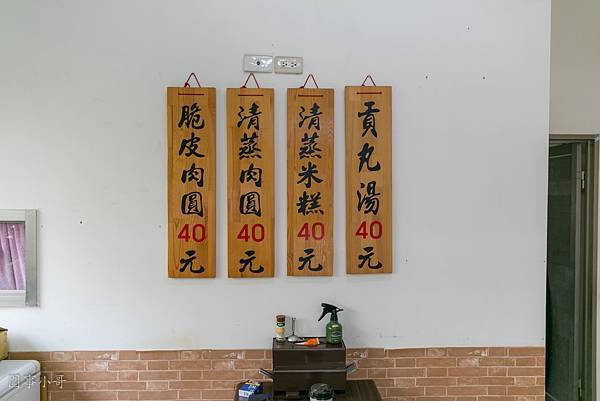 脆皮肉圓40元
清蒸肉圓40元
清蒸米糕40元
貢丸湯40元